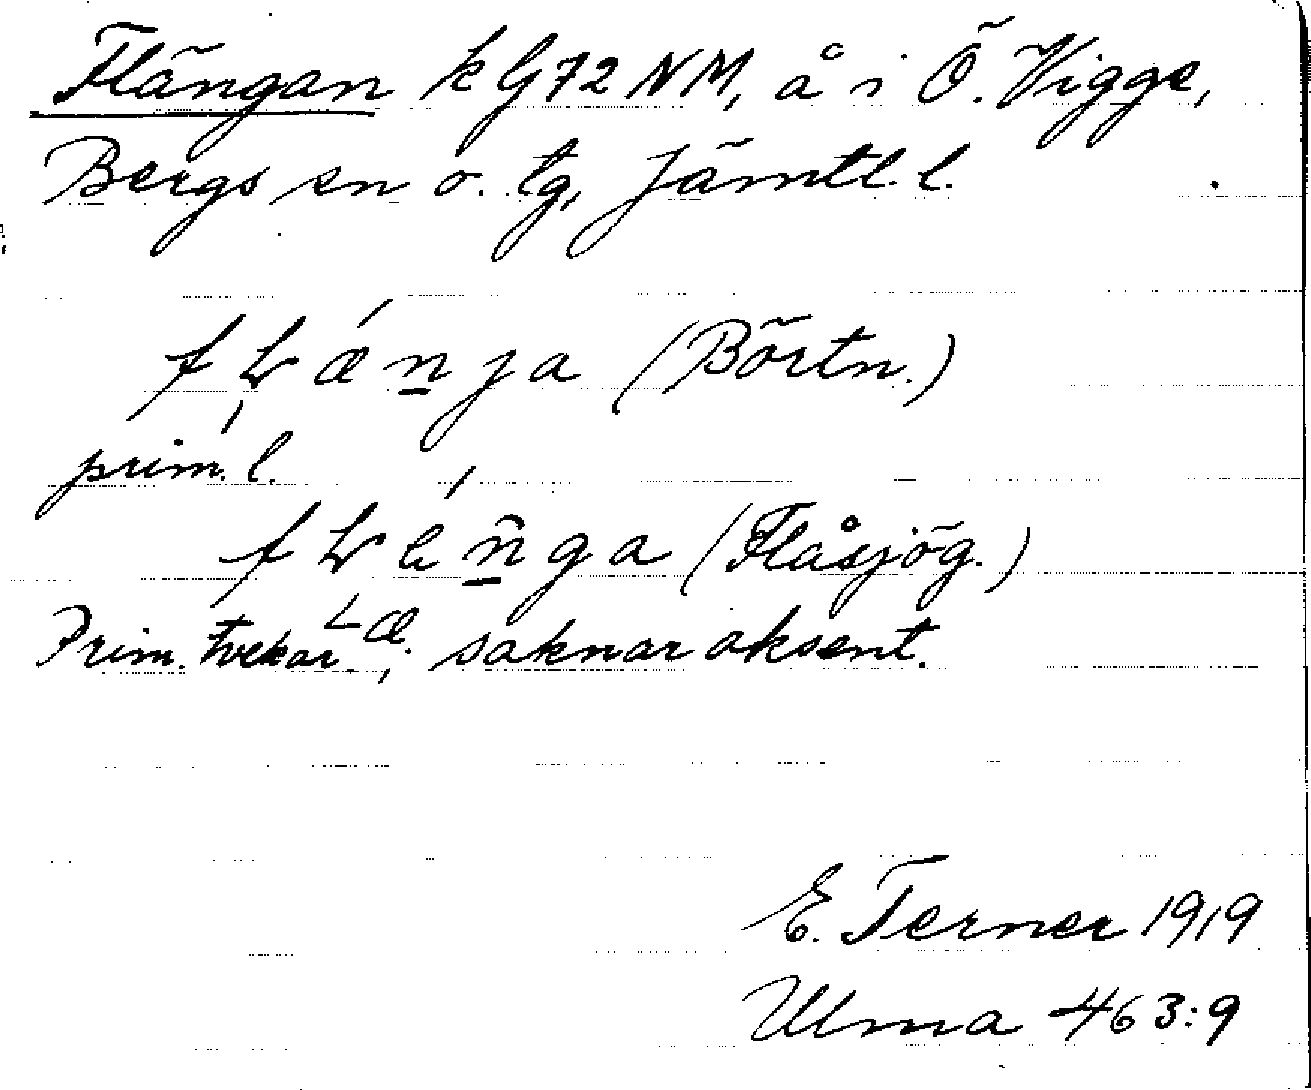 Flängan k G 72 NM, å i Ö. Vigge,
Bergs sn o. tg, Jämtl. l.
fLǽn̲ja (Börtn.)
prim. l.
fLén̲ga (Flåsjög.)
Prim. tvekar L æ. ; saknar aksent.
E. Terner 1919
Ulma 463:9